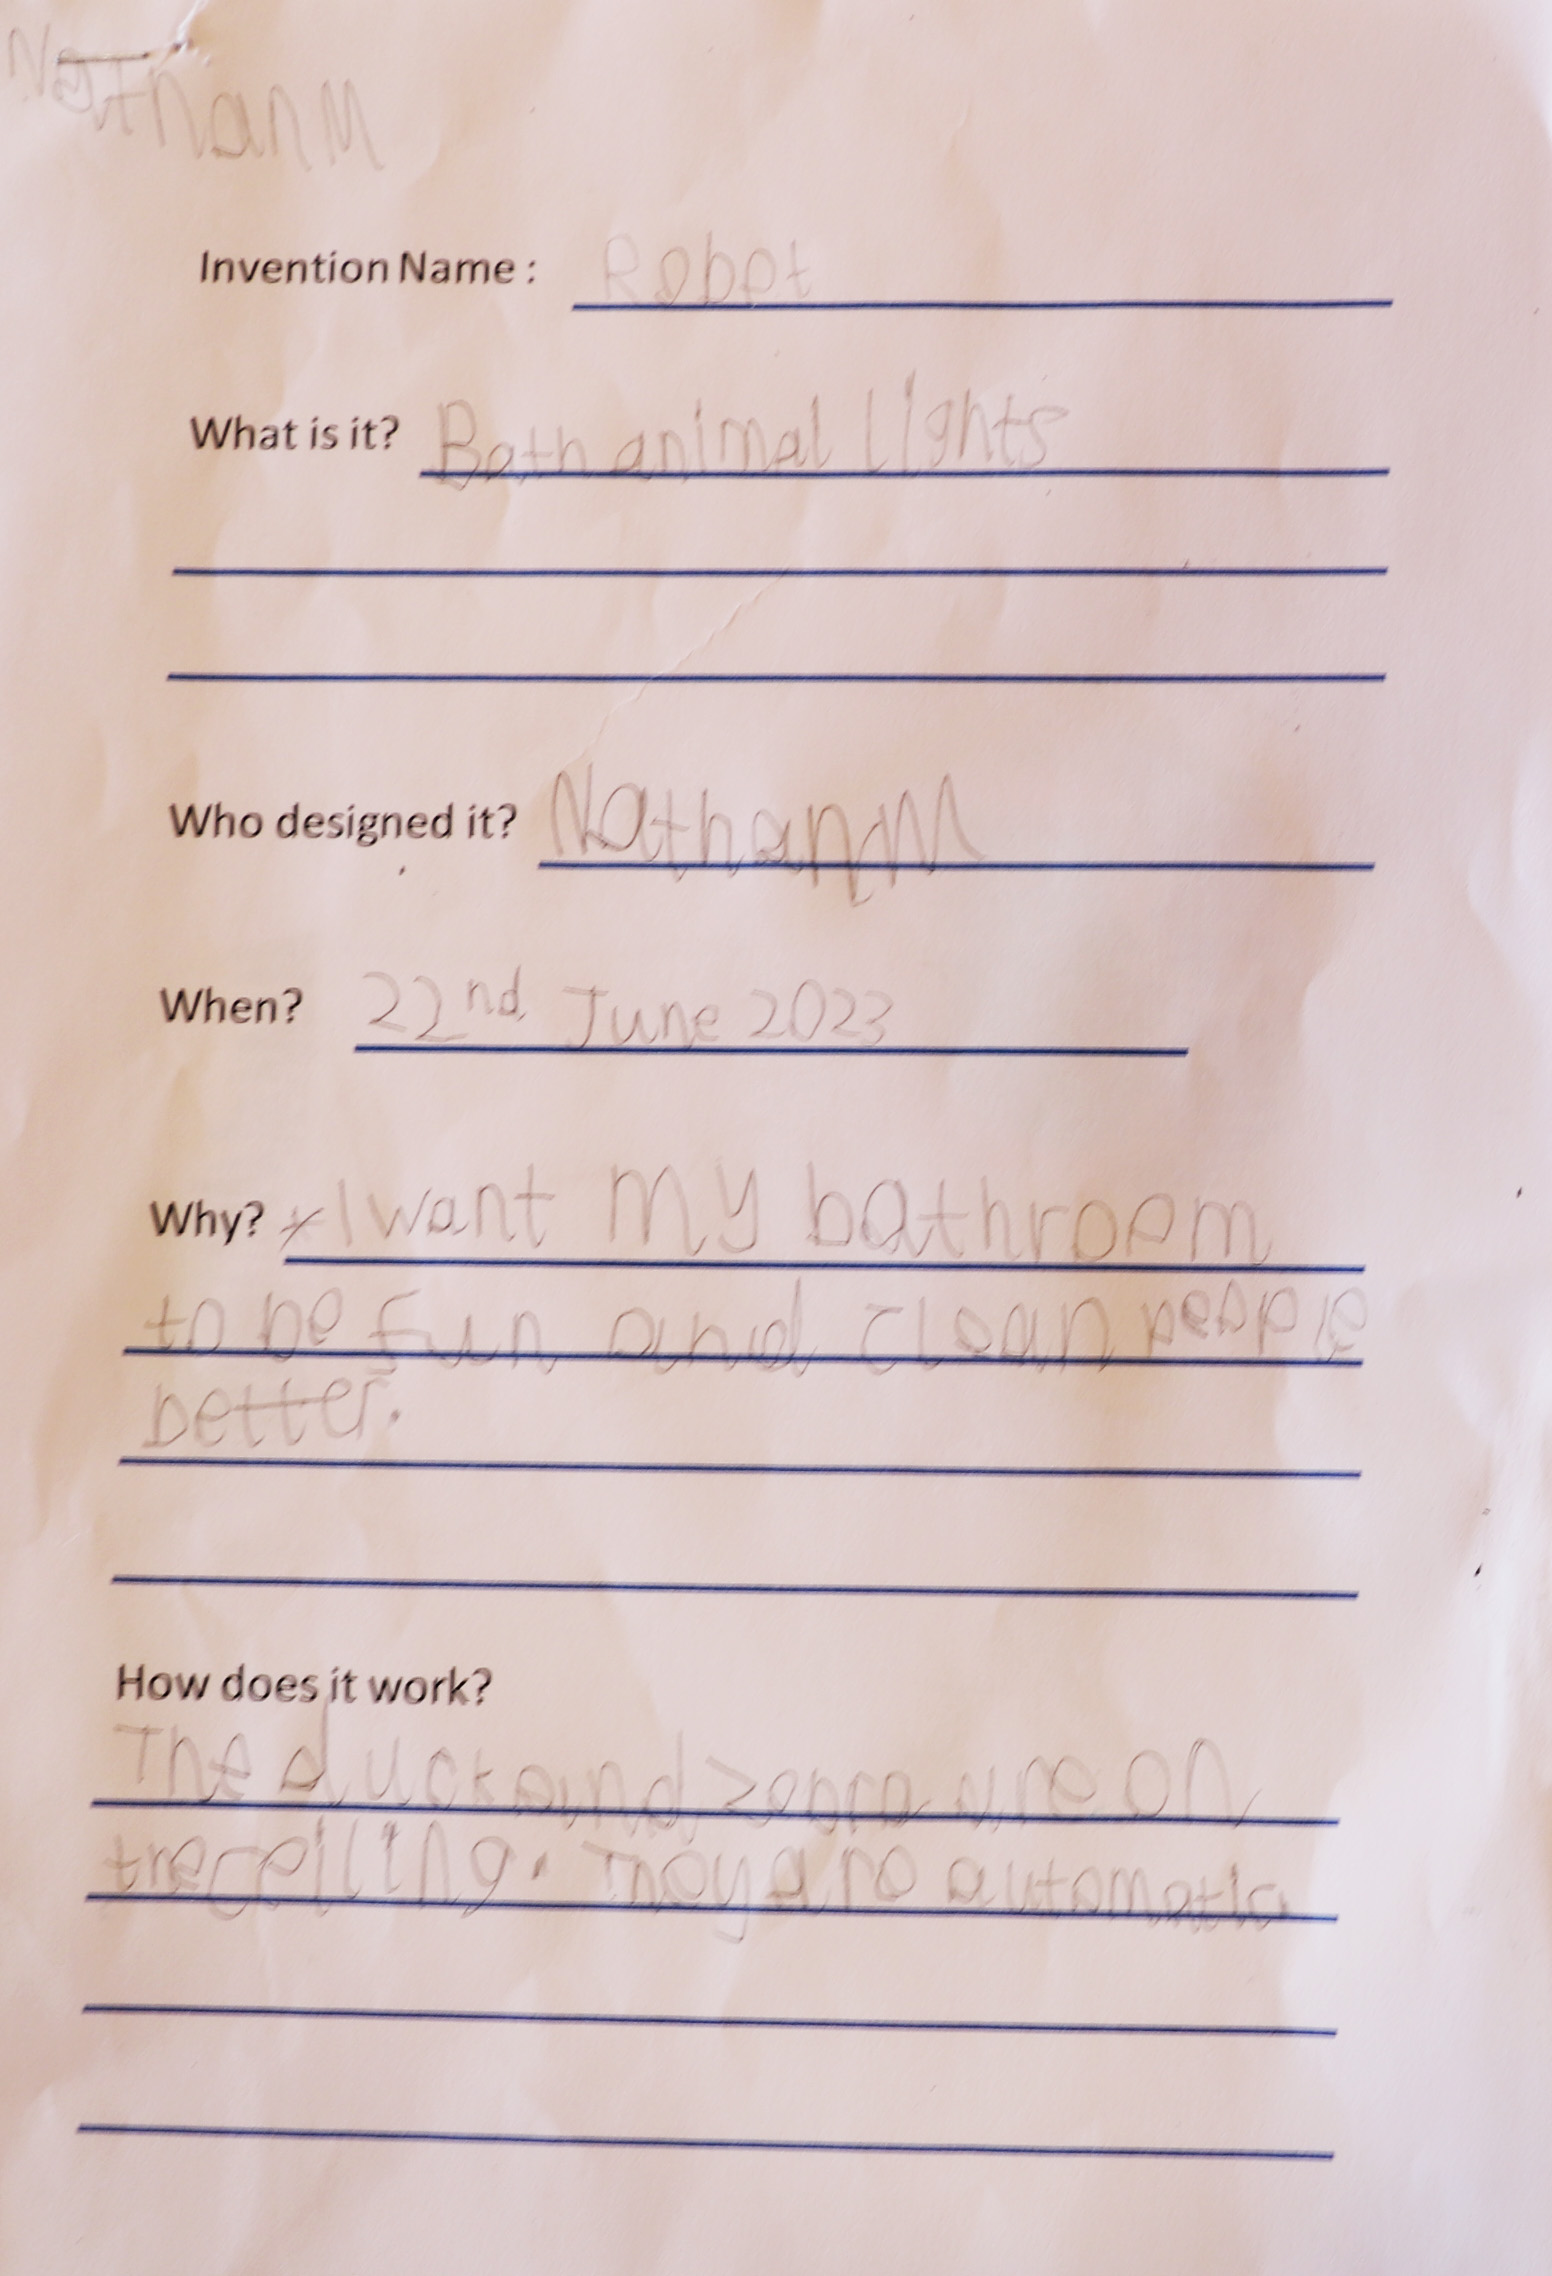 Nathan M
Invention Name : Robot
What is it? Bath animal lights
Who designed it? Nathan M
When? 22nd June 2023
Why? I want my bathroom
to be fun and clean people
better.
How does it work?
The duck and zebra are on
the ceiling. They are automatic